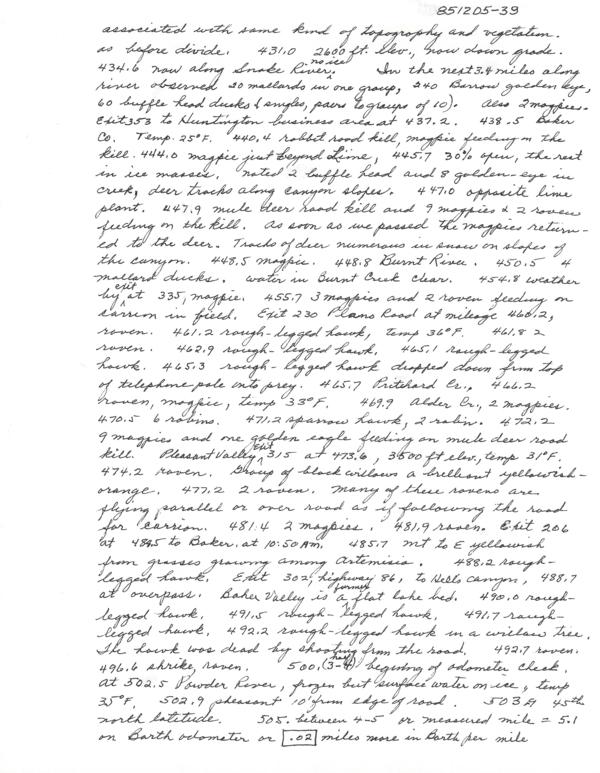 851205-39
associated with same kind of topography and vegetation.
as before divide. 431.0 2600 ft. elev., now down grade.
434.6 now along Snake River, no ice. In the next 3.4 miles along
river observed 20 mallards in one group, 240 Barrow golden eye,
60 buffle head ducks (singles, pairs to groups of 10). Also 2 magpies.
Exit 353 to Huntington business area at 437.2. 438.5 Baker
Co. Temp. 25°F. 440.4 rabbit road kill, magpie feeding on the
kill. 444.0 magpie just beyond Lime, 445.7 30% open, the rest
in ice masses. noted 2 buffle head and 8 golden-eye in
creek, deer tracks along canyon slopes. 447.0 opposite lime
plant. 447.9 mule deer road kill and 9 magpies & 2 raven
feeding on the kill. As soon as we passed the magpies return-
ed to the deer. Tracks of deer numerous in snow on slopes of
the canyon. 448.5 magpie. 448.8 Burnt River. 450.5 4
mallard ducks. water in Burnt Creek clear. 454.8 weather
by exit at 335, magpie. 455.7 3 magpies and 2 raven feeding on
carrion in field. Exit 230 Plano Road at mileage 460.2,
raven. 461.2 rough-legged hawk, temp 36°F. 461.8 2
raven. 462.9 rough-legged hawk. 465.1 rough-legged
hawk. 465.3 rough-legged hawk dropped down from top
of telephone pole onto prey. 465.7 Pritchard Cr., 466.2
raven, magpie, temp 33°F. 469.9 Alder Cr., 2 magpies.
470.5 6 robins. 471.2 sparrow hawk, 2 robin. 472.2
9 magpies and one golden eagle feeding on mule deer road
kill. Pleasant Valley exit 315 at 473.6, 3500 ft elev., temp 31°F.
474.2 raven. Group of black willows a brilliant yellowish-
orange. 477.2 2 raven. Many of these ravens are
flying parallel or over road as if following the road
for carrion. 481.4 2 magpies. 481.9 raven. Exit 206
at 484.5 to Baker, at 10:50 AM. 485.7 mt to E yellowish
from grasses growing among Artemisia. 488.2 rough-
legged hawk. Exit 302, highway 86, to Hells Canyon, 488.7
at overpass. Baker Valley is a former flat lake bed. 490.0 rough-
legged hawk. 491.5 rough-legged hawk. 491.7 rough-
legged hawk. 492.2 rough-legged hawk in a willow tree.
The hawk was dead by shooting from the road. 492.7 raven.
496.6 shrike, raven. 500. (3-4) beginning of odometer check.
At 502.5 Powder River, frozen but surface water on ice, temp
35°F. 502.9 pheasant 10' from edge of road. 503 45th
north latitude. 505. between 4-5 or measured mile = 5.1
on Barth odometer or .02 miles more in Barth per mile